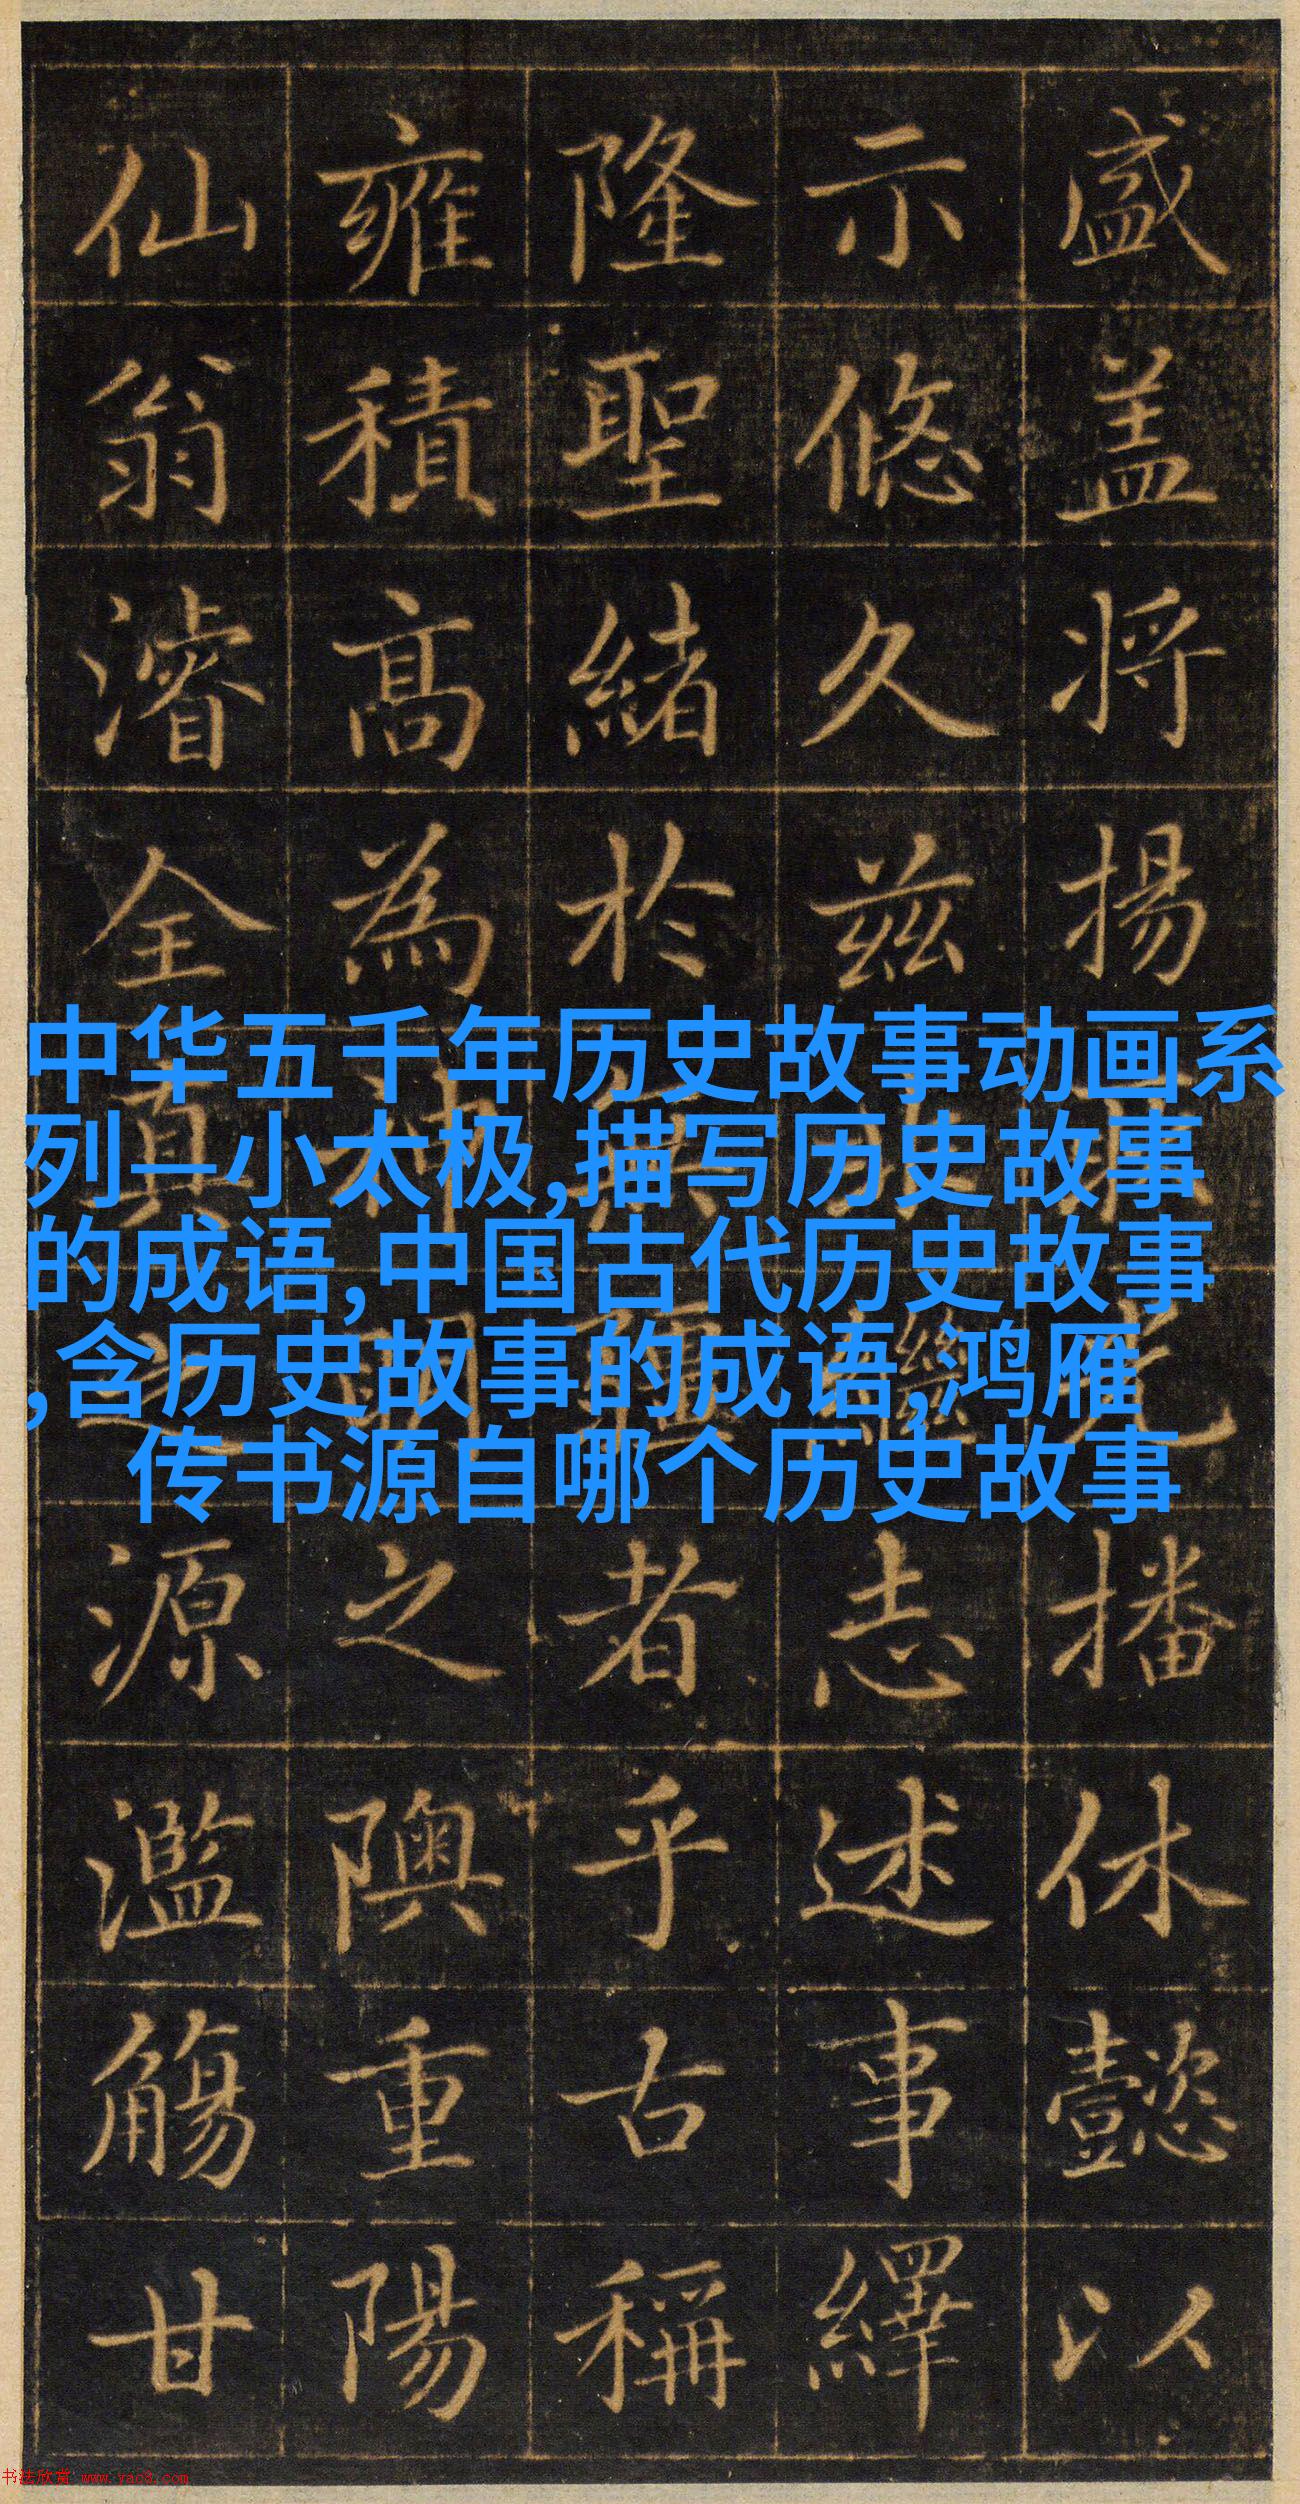 盛盖将揚光播休懿以
示悠久兹繼志述事繹
隆聖緒於無疆者乎古稱
雍積高為神明之隩重陽
仙翁濬全真之源濫觴甘
中华五千年历史故事动画系
列—小太极,描写历史故事
的成语,中国古代历史故事
,含历史故事的成语,鸿雁
传书源自哪个历史故事
书法欣赏 www.yac8.com